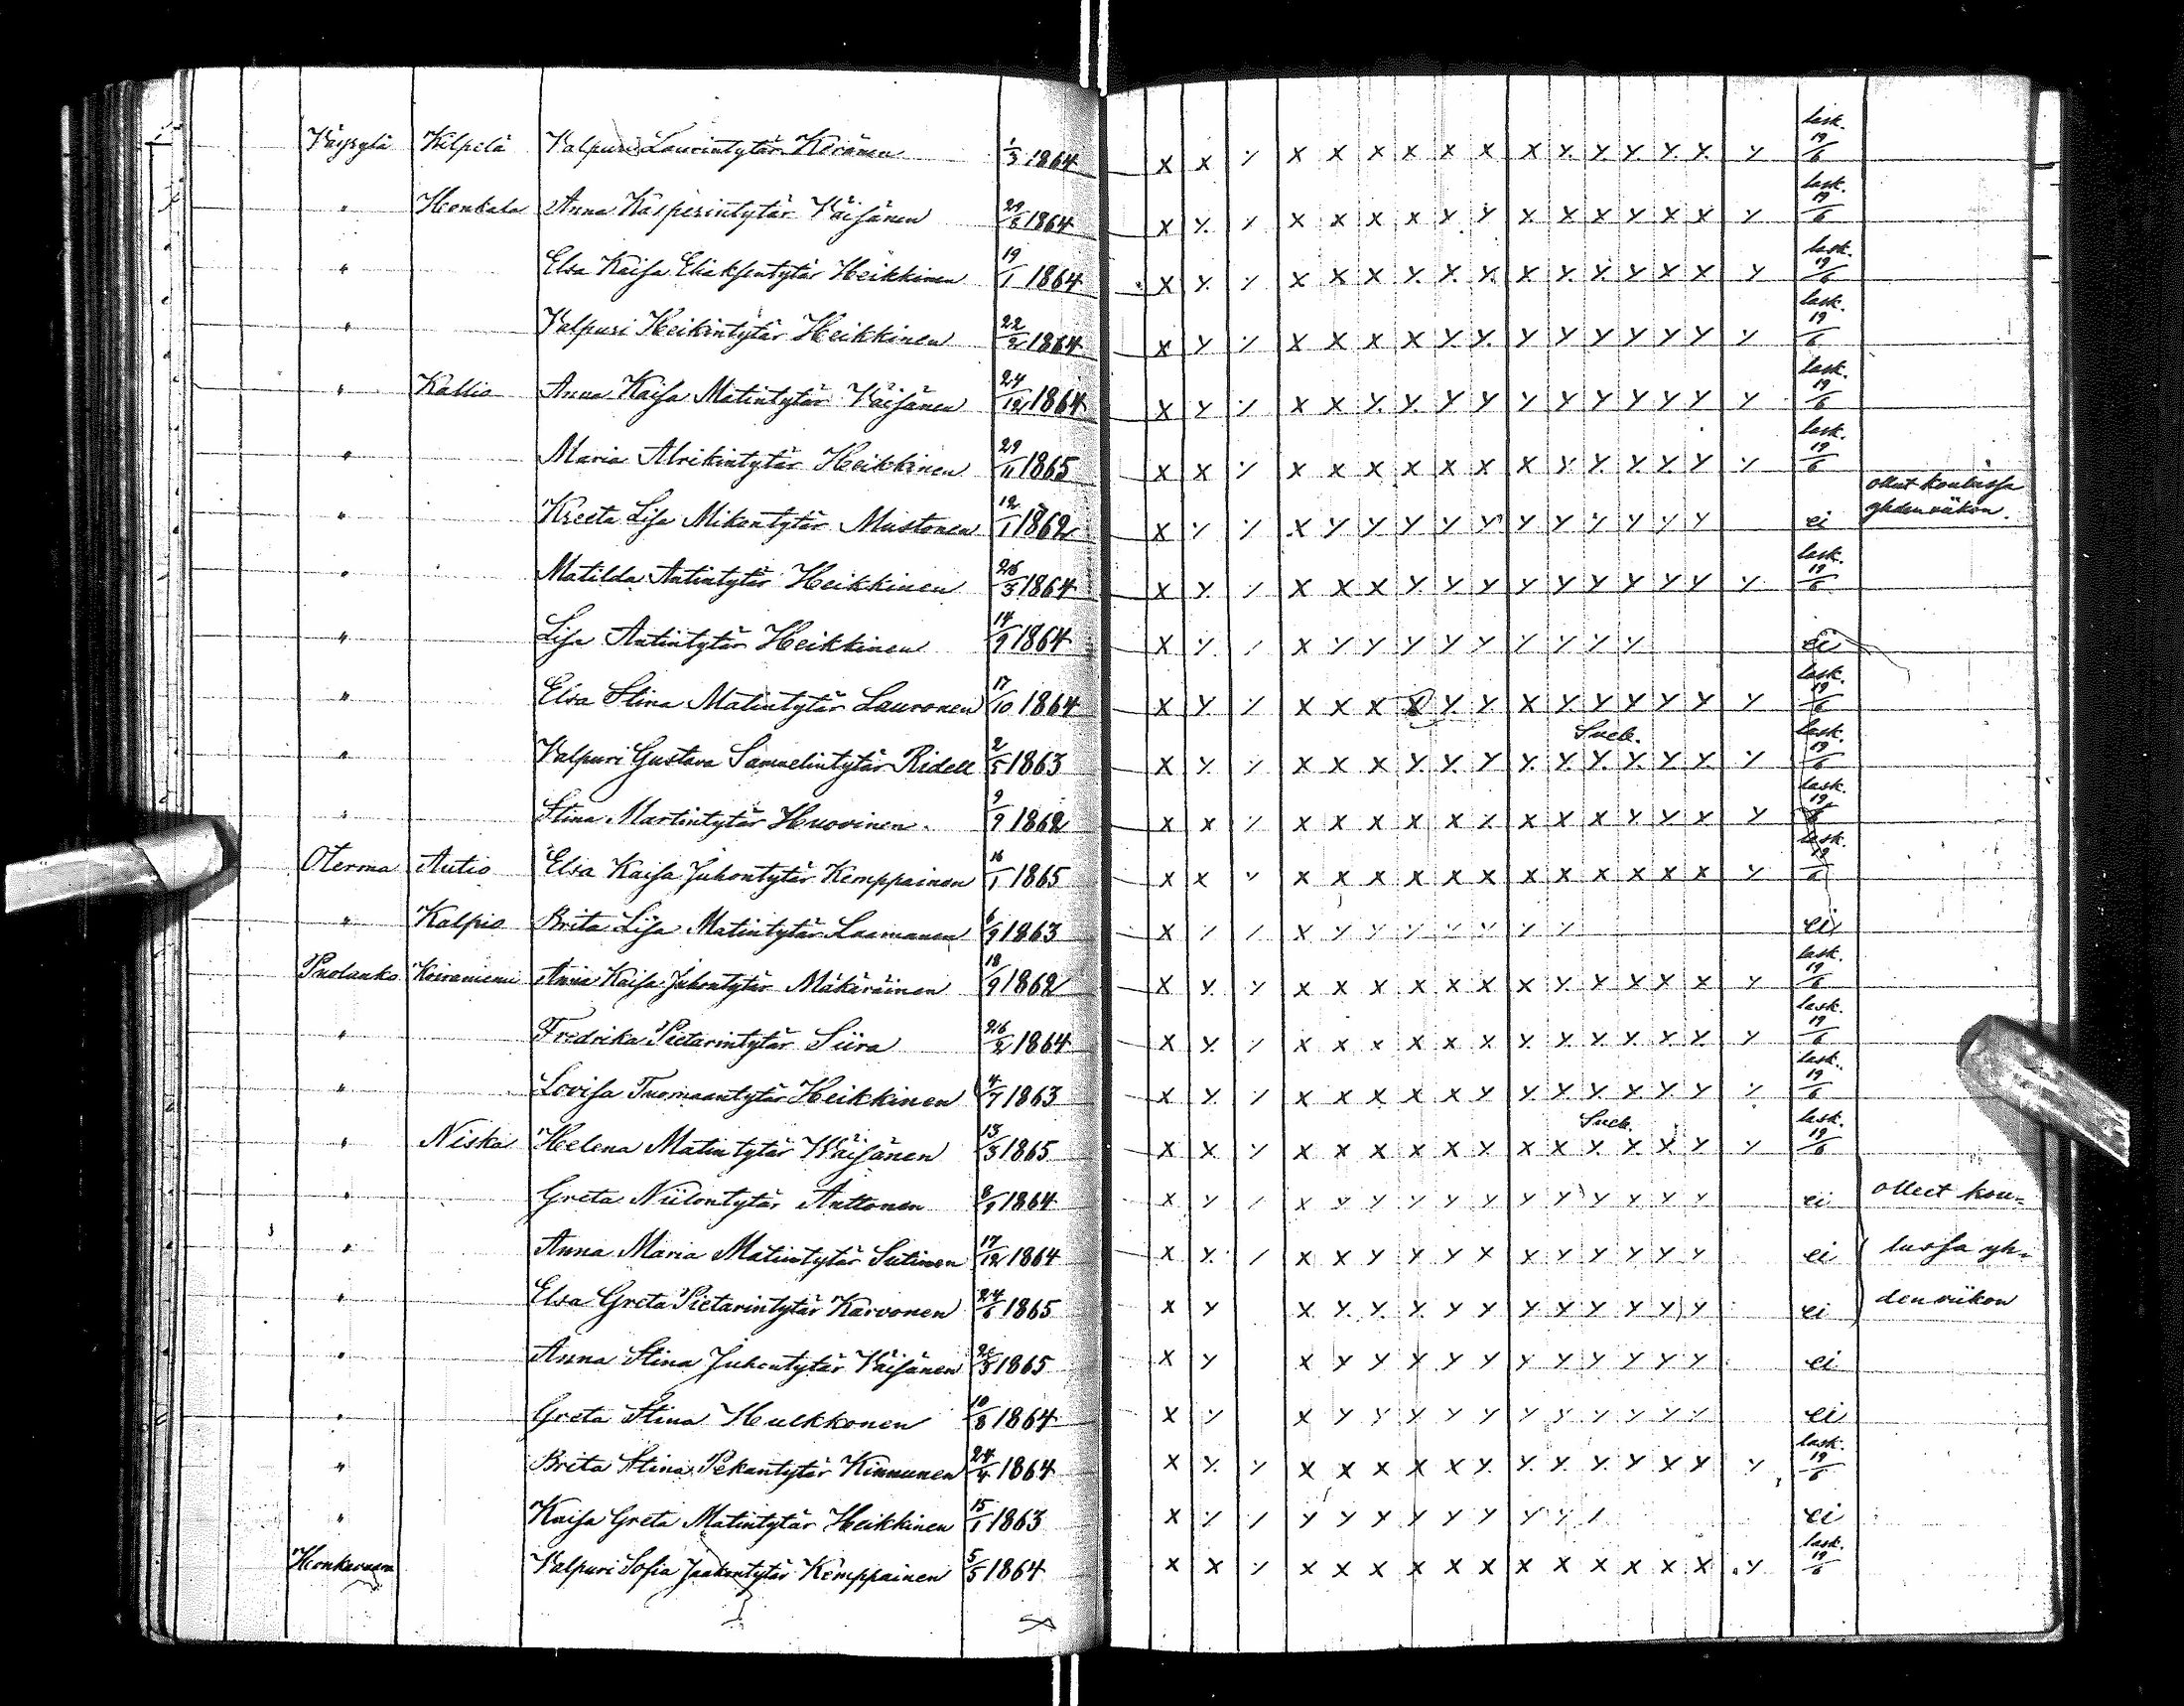 Väyrylä Kilpelä Valpuri Laurintytär Keränen 1/3 1864 x x y x x x x x x x y y y y y y lask. 19/6
" Honkala Anna Kasperintytär Väisänen 29/6 1864 x y y x x x x y y x x x y x x y lask. 19/6
" Elsa Kaisa Eliaksentytär Heikkinen 19/1 1864 x y y x x x y y x x y y y x x y lask. 19/6
" Valpuri Heikintytär Heikkinen 22/2 1864 x y y x x x x y y y y y y y y y lask. 19/6
" Kallio Anna Kaisa Matintytär Väisänen 24/12 1864 x y y x x y y y y y y y y y y y lask. 19/6
" Maria Alrikintytär Heikkinen 29/11 1865 x x y x x x x x x x y y y y y y lask. 19/6
" Kreeta Lisa Mikontytär Mustonen 12/1 1862 x y y x y y y y y y y y y y y ei ollut koulussa yhden viikon.
" Matilda Antintytär Heikkinen 26/3 1864 x y y x x x y y y y y y y y y y lask. 19/6
" Lisa Antintytär Heikkinen 14/9 1864 x y y x y y y y y y y y y ei
" Elsa Stina Matintytär Lauronen 17/10 1864 x y y x x x x y y x y y y y y y lask. 19/6
" Valpuri Gustava Samuelintytär Ridell 2/5 1863 x y y x x x y y y y y y y y y y lask. 19/6
" Stina Martintytär Huovinen. 9/9 1862 x x y x x x x x y x x x y y x y lask. 19/6
Oterma Autio Elsa Kaisa Juhontytär Kemppainen 16/1 1865 x x y x x x x x x x x x x x x y lask. 19/6
" Kalpio Brita Lisa Matintytär Laamanen 6/9 1863 x y y x y y y y y y y ei
Puolanko Koiraniemi Anna Kaisa Juhontytär Mäkäräinen 18/9 1862 x y y x x x x x x x y y x x x y lask. 19/6
" Fredrika Pietarintytär Siira 26/2 1864 x y y x x x x x x y y y y y y y lask. 19/6
" Lovisa Tuomaantytär Heikkinen 4/7 1863 x y y x x x x x y y y y y y y y lask. 19/6
" Niska Helena Matintytär Väisänen 13/3 1865 x x y x x x x x x x x y y x y y lask. 19/6
" Greta Niilontytär Anttonen 1864 x y y x y y y y y y y y y y y ei olleet kou-
" Anna Maria Matintytär Sutinen 17/12 1864 x y y x x y y y x y y y y y y ei lussa yh-
" Elsa Greta Pietarintytär Karvonen 24/6 1865 x y x y y y y y y x y y y y ei den viikon
" Anna Stina Juhontytär Väisänen 1865 x y x y y y y y y y y y y y ei
" Greta Stina Hulkkonen 10/8 1864 x y x y y y y y y y y y y y ei
" Brita Stina Pekantytär Kinnunen 24/4 1864 x y y x x x x x y y y y y x x y lask. 19/6
" Kaisa Greta Matintytär Heikkinen 15/1 1863 x y y y y y y y y y y y ei
Honkavaara Valpuri Sofia Jaakontytär Kemppainen 5/5 1864 x x y x x x x x x x x x x x x y lask. 19/6